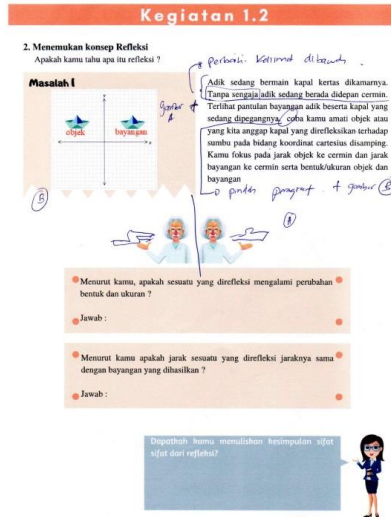 Kegiatan 1.2
2. Menemukan konsep Refleksi
Apakah kamu tahu apa itu refleksi ?
perbaiki kalimat dibawah.
Masalah 1
objek
bayangan
gambar
A
Adik sedang bermain kapal kertas dikamarnya.
Tanpa sengaja adik sedang berada didepan cermin.
Terlihat pantulan bayangan adik beserta kapal yang
sedang dipegangnya, coba kamu amati objek atau
yang kita anggap kapal yang direfleksikan terhadap
sumbu pada bidang koordinat cartesius disamping.
Kamu fokus pada jarak objek ke cermin dan jarak
bayangan ke cermin serta bentuk/ukuran objek dan
bayangan
pindah paragraf + gambar B
B
A
Menurut kamu, apakah sesuatu yang direfleksi mengalami perubahan
bentuk dan ukuran ?
Jawab :
Menurut kamu apakah jarak sesuatu yang direfleksi jaraknya sama
dengan bayangan yang dihasilkan ?
Jawab :
Dapatkah kamu menuliskan kesimpulan sifat
sifat dari refleksi?